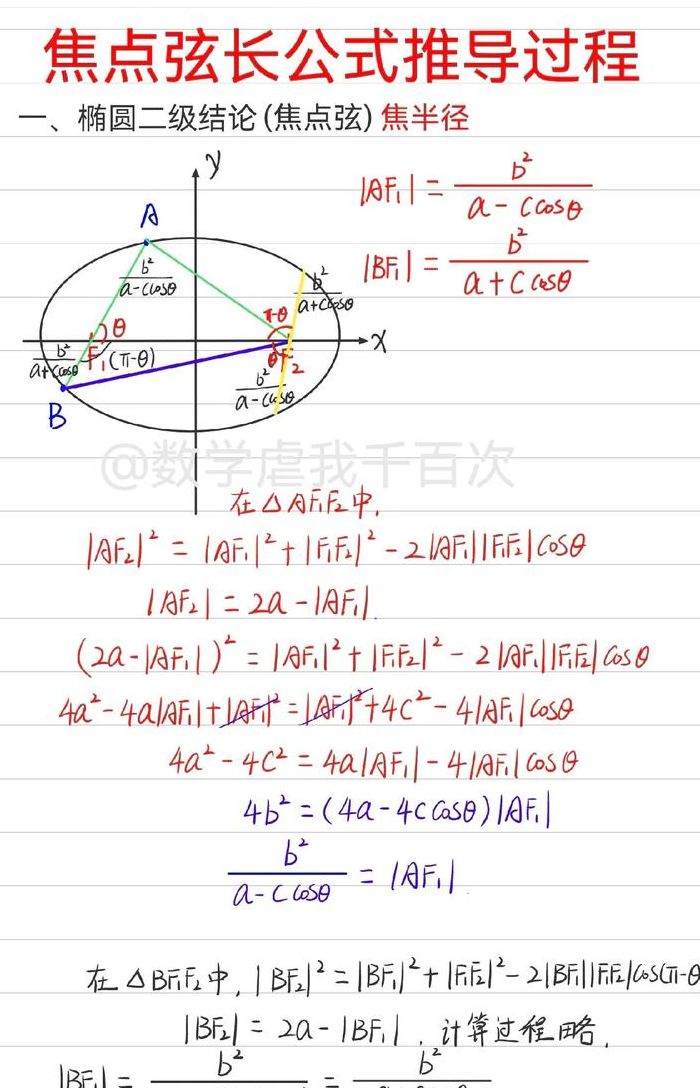 焦点弦长公式推导过程
一、椭圆二级结论(焦点弦) 焦半径
y
A
|AF₁| = b² / (a - c cosθ)
|BF₁| = b² / (a + c cosθ)
b² / (a - c cosθ)
b² / (a + c cosθ)
θ
π-θ
x
b² / (a + c cosθ)
F₁
(π-θ)
θ
F₂
b² / (a - c cosθ)
B
@数学虐我千百次
在△AF₁F₂中,
|AF₂|² = |AF₁|² + |F₁F₂|² - 2|AF₁||F₁F₂|cosθ
|AF₂| = 2a - |AF₁|.
(2a - |AF₁|)² = |AF₁|² + |F₁F₂|² - 2|AF₁||F₁F₂|cosθ
4a² - 4a|AF₁| + |AF₁|² = |AF₁|² + 4c² - 4|AF₁|cosθ
4a² - 4c² = 4a|AF₁| - 4|AF₁|cosθ
4b² = (4a - 4c cosθ)|AF₁|
b² / (a - c cosθ) = |AF₁|.
在△BF₁F₂中, |BF₂|² = |BF₁|² + |F₁F₂|² - 2|BF₁||F₁F₂|cos(π-θ
|BF₂| = 2a - |BF₁|. 计算过程略,
|BF₁| = b² = b²